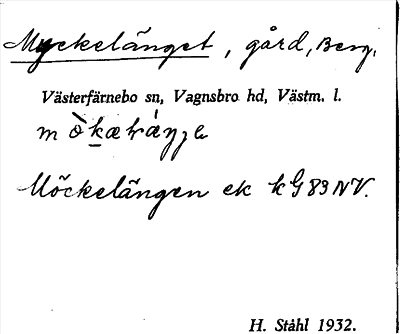 Myckelänget, gård, Berg.
Västerfärnebo sn, Vagnsbro hd, Västm. l.
Möckelängen ek k G 83 NV.
H. Ståhl 1932.